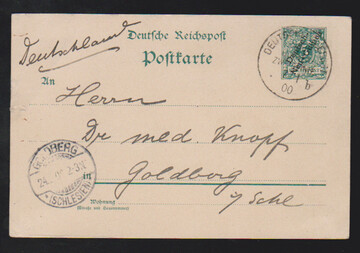 Deutschland
Deutsche Reichspost
Postkarte
An
Herrn
Dr med. Knopf
in
Goldberg
i/Schl
Wohnung
(Straße und Hausnummer)
GOLDBERG
(SCHLESIEN)
00
b